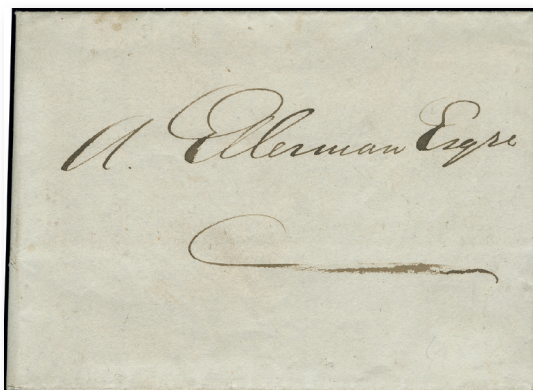 A. Ellerman Esqre